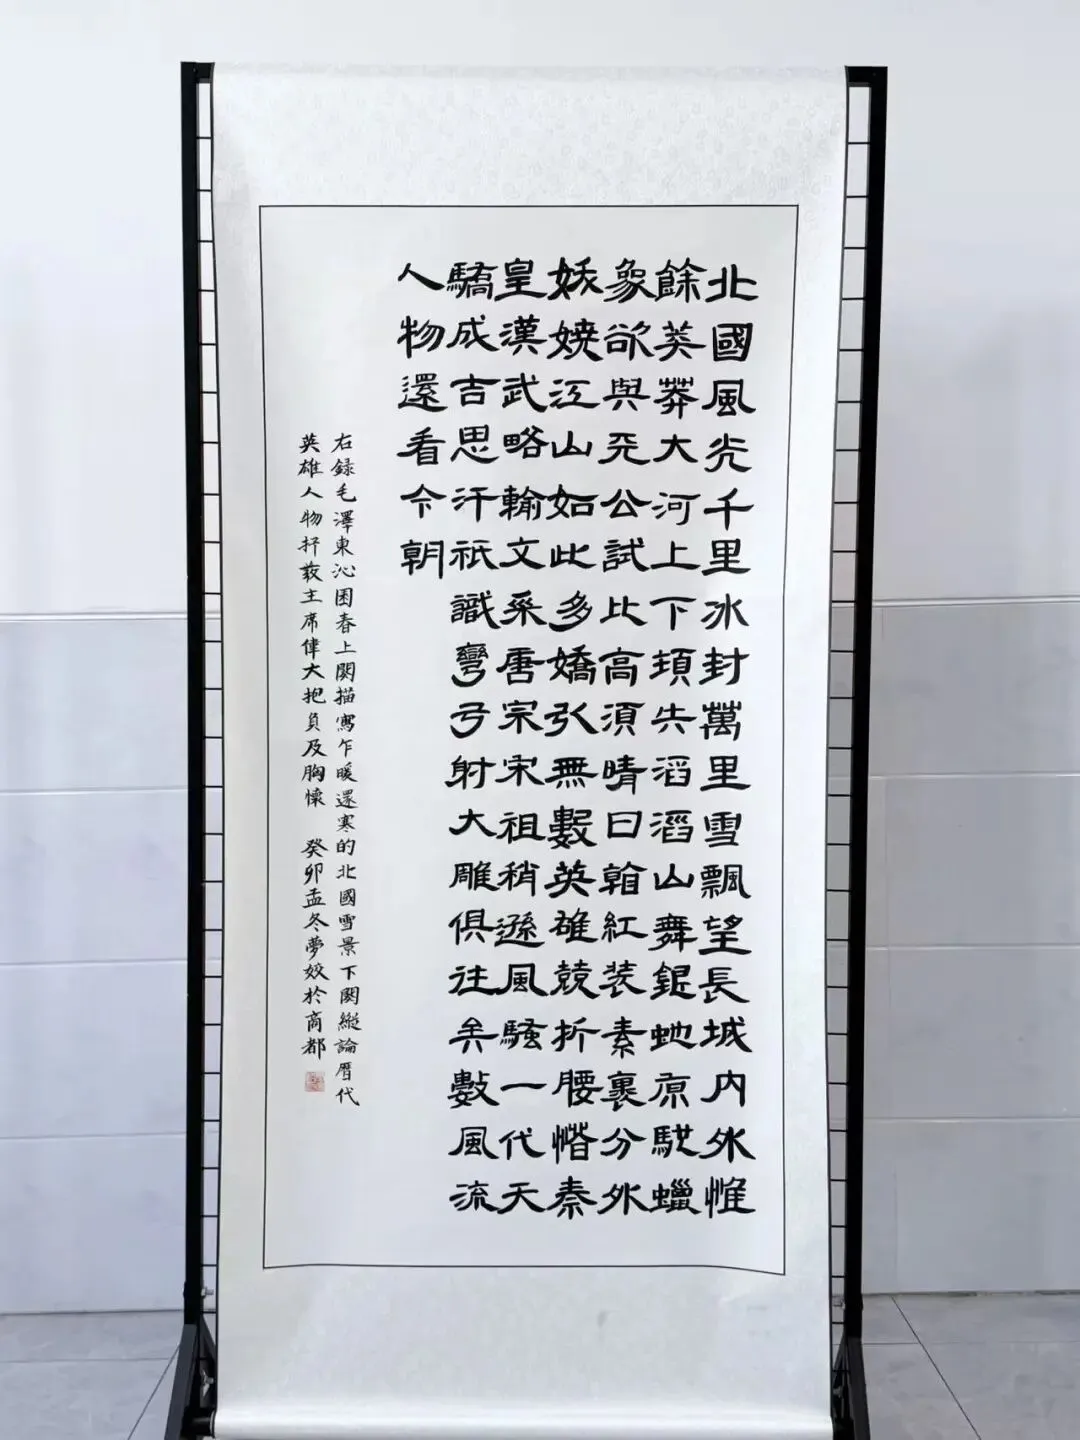 北國風光千里冰封萬里雪飄望長城內外惟
餘莽莽大河上下頓失滔滔山舞銀虵原馳蠟
象欲與天公試比高須晴日看紅装素裹分外
妖嬈江山如此多嬌引無數英雄競折腰惜秦
皇漢武略輸文采唐宗宋祖稍遜風騷一代天
驕成吉思汗祇識彎弓射大雕俱往矣數風流
人物還看今朝
右録毛澤東沁園春上闋描寫乍暖還寒的北國雪景下闋縱論曆代
英雄人物抒發主席偉大抱負及胸懷 癸卯孟冬夢姣於商都